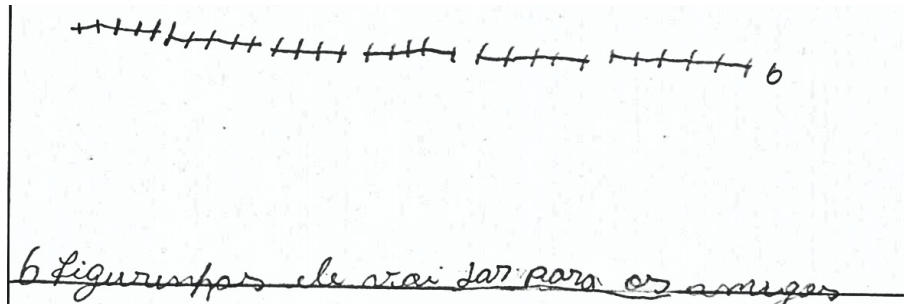 6
6 figurinhas ele vai dar para os amigos